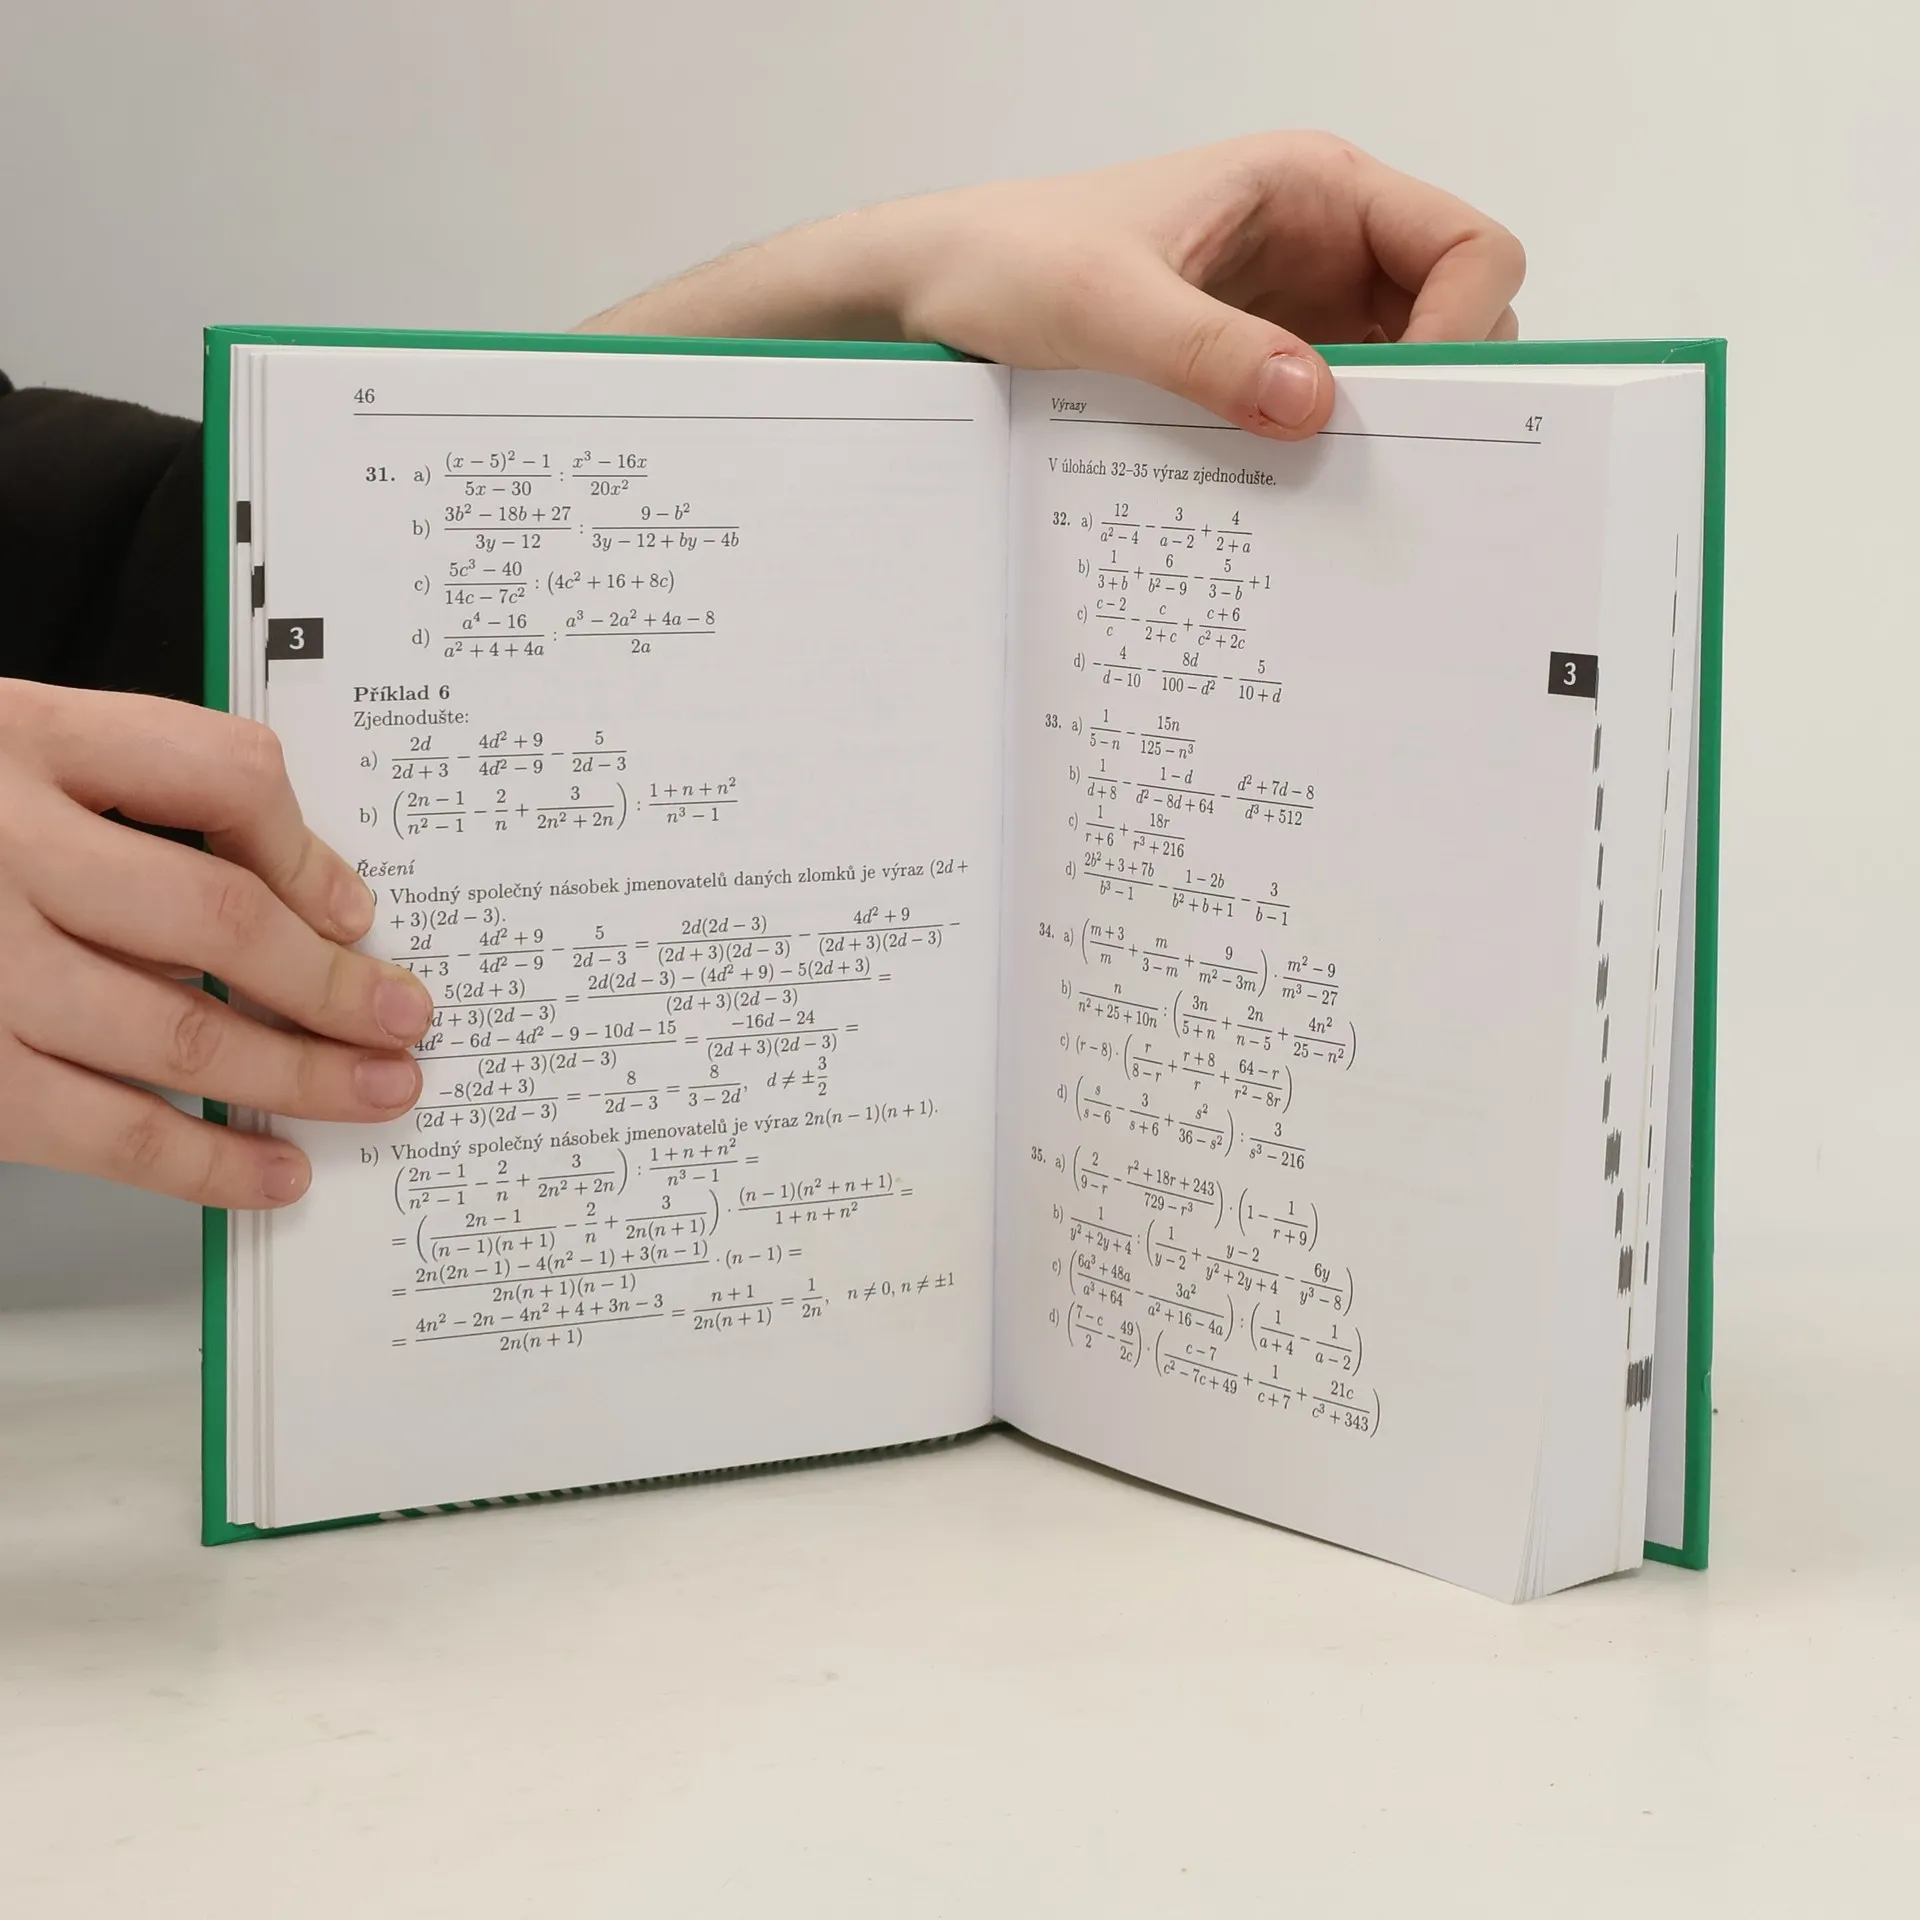 46
31. a) \frac{(x-5)^2-1}{5x-30} : \frac{x^3-16x}{20x^2}
b) \frac{3b^2-18b+27}{3y-12} : \frac{9-b^2}{3y-12+by-4b}
c) \frac{5c^3-40}{14c-7c^2} : (4c^2+16+8c)
3
d) \frac{a^4-16}{a^2+4+4a} : \frac{a^3-2a^2+4a-8}{2a}
Příklad 6
Zjednodušte:
a) \frac{2d}{2d+3} - \frac{4d^2+9}{4d^2-9} - \frac{5}{2d-3}
b) \left(\frac{2n-1}{n^2-1} - \frac{2}{n} + \frac{3}{2n^2+2n}\right) : \frac{1+n+n^2}{n^3-1}
Řešení
) Vhodný společný násobek jmenovatelů daných zlomků je výraz (2d+
+3)(2d-3).
\frac{2d}{d+3} - \frac{4d^2+9}{4d^2-9} - \frac{5}{2d-3} = \frac{2d(2d-3)}{(2d+3)(2d-3)} - \frac{4d^2+9}{(2d+3)(2d-3)} -
\frac{5(2d+3)}{d+3)(2d-3)} = \frac{2d(2d-3)-(4d^2+9)-5(2d+3)}{(2d+3)(2d-3)} =
\frac{4d^2-6d-4d^2-9-10d-15}{(2d+3)(2d-3)} = \frac{-16d-24}{(2d+3)(2d-3)} =
\frac{-8(2d+3)}{(2d+3)(2d-3)} = -\frac{8}{2d-3} = \frac{8}{3-2d}, d ≠ ±\frac{3}{2}
b) Vhodný společný násobek jmenovatelů je výraz 2n(n-1)(n+1).
\left(\frac{2n-1}{n^2-1} - \frac{2}{n} + \frac{3}{2n^2+2n}\right) : \frac{1+n+n^2}{n^3-1} =
= \left(\frac{2n-1}{(n-1)(n+1)} - \frac{2}{n} + \frac{3}{2n(n+1)}\right) · \frac{(n-1)(n^2+n+1)}{1+n+n^2} =
= \frac{2n(2n-1)-4(n^2-1)+3(n-1)}{2n(n+1)(n-1)} · (n-1) =
= \frac{4n^2-2n-4n^2+4+3n-3}{2n(n+1)} = \frac{n+1}{2n(n+1)} = \frac{1}{2n}, n ≠ 0, n ≠ ±1
Výrazy 47
V úlohách 32–35 výraz zjednodušte.
32. a) \frac{12}{a^2-4} - \frac{3}{a-2} + \frac{4}{2+a}
b) \frac{1}{3+b} + \frac{6}{b^2-9} - \frac{5}{3-b} + 1
c) \frac{c-2}{c} - \frac{c}{2+c} + \frac{c+6}{c^2+2c}
d) -\frac{4}{d-10} - \frac{8d}{100-d^2} - \frac{5}{10+d}
3
33. a) \frac{1}{5-n} - \frac{15n}{125-n^3}
b) \frac{1}{d+8} - \frac{1-d}{d^2-8d+64} - \frac{d^2+7d-8}{d^3+512}
c) \frac{1}{r+6} + \frac{18r}{r^3+216}
d) \frac{2b^2+3+7b}{b^3-1} - \frac{1-2b}{b^2+b+1} - \frac{3}{b-1}
34. a) \left(\frac{m+3}{m} + \frac{m}{3-m} + \frac{9}{m^2-3m}\right) · \frac{m^2-9}{m^3-27}
b) \frac{n}{n^2+25+10n} : \left(\frac{3n}{5+n} + \frac{2n}{n-5} + \frac{4n^2}{25-n^2}\right)
c) (r-8) · \left(\frac{r}{8-r} + \frac{r+8}{r} + \frac{64-r}{r^2-8r}\right)
d) \left(\frac{s}{s-6} - \frac{3}{s+6} + \frac{s^2}{36-s^2}\right) : \frac{3}{s^3-216}
35. a) \left(\frac{2}{9-r} - \frac{r^2+18r+243}{729-r^3}\right) · \left(1-\frac{1}{r+9}\right)
b) \frac{1}{y^2+2y+4} : \left(\frac{1}{y-2} + \frac{y-2}{y^2+2y+4} - \frac{6y}{y^3-8}\right)
c) \left(\frac{6a^3+48a}{a^3+64} - \frac{3a^2}{a^2+16-4a}\right) : \left(\frac{1}{a+4} - \frac{1}{a-2}\right)
d) \left(\frac{7-c}{2} - \frac{49}{2c}\right) · \left(\frac{c-7}{c^2-7c+49} + \frac{1}{c+7} + \frac{21c}{c^3+343}\right)